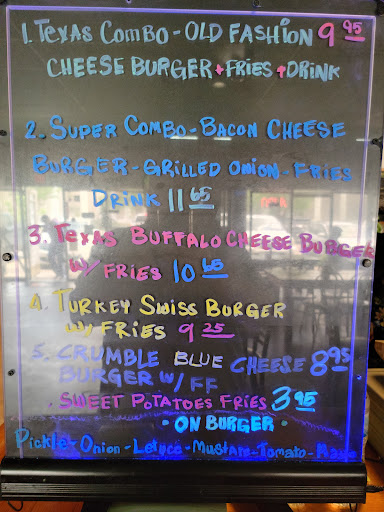 1. Texas Combo - OLD FASHION 9 95
CHEESE BURGER + FRIES + DRINK
2. SUPER COMBO - BACON CHEESE
BURGER - GRILLED ONION - FRIES
DRINK 11 65
3. Texas BUFFALO CHEESE BURGER
W/ FRIES 10 65
4. TURKEY SWISS BURGER
W/ FRIES 9 25
5. CRUMBLE BLUE CHEESE 8 95
BURGER W/ FF
. SWEET POTATOES FRIES 3 95
• ON BURGER •
Pickle - Onion - Letuce - Mustard - Tomato - Mayo